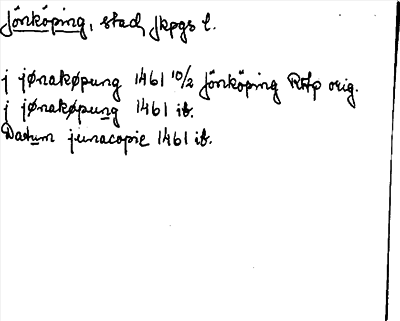 Jönköping, stad, Jkpgs l.
j jønakøpung 1461 10/2 Jönköping RAp orig.
j jønakøpung 1461 ib.
Datum junacopie 1461 ib.